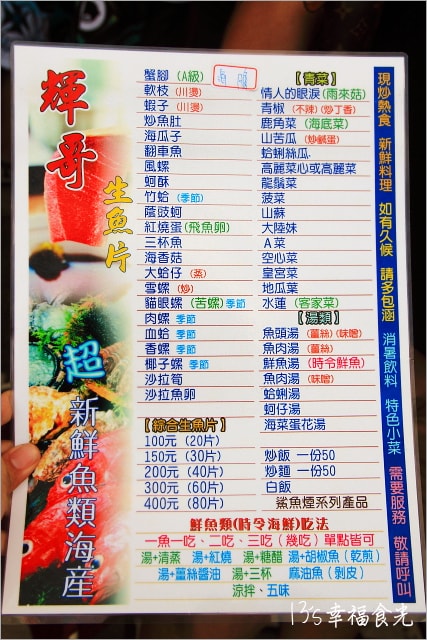 輝哥
生魚片
超
新鮮魚類海産
蟹腳(A級)
軟枝(川燙)
蝦子(川燙)
炒魚肚
海瓜子
翻車魚
風螺
蚵酥
竹蛤 季節
蔭豉蚵
紅燒蛋(飛魚卵)
三杯魚
海香菇
大蛤仔(蒸)
雪螺(炒)
貓眼螺(苦螺)季節
肉螺 季節
血蛤 季節
香螺 季節
椰子螺 季節
沙拉筍
沙拉魚卵
【綜合生魚片】
100元(20片)
150元(30片)
200元(40片)
300元(60片)
400元(80片)
【青菜】
情人的眼淚(雨來菇)
青椒(不辣)(炒丁香)
鹿角菜(海底菜)
山苦瓜(炒鹹蛋)
蛤蜊絲瓜
高麗菜心或高麗菜
龍鬚菜
菠菜
山蘇
大陸妹
A菜
空心菜
皇宮菜
地瓜葉
水蓮(客家菜)
【湯類】
魚頭湯(薑絲)(味噌)
魚肉湯(薑絲)
鮮魚湯(時令鮮魚)
魚肉湯(味噌)
蛤蜊湯
蚵仔湯
海菜蛋花湯
炒飯 一份50
炒麵 一份50
白飯
鯊魚煙系列產品
鮮魚類(時令海鮮)吃法
一魚一吃、二吃、三吃(幾吃)單點皆可
湯+清蒸 湯+紅燒 湯+糖醋 湯+胡椒魚(乾煎)
湯+薑絲醬油 湯+三杯 麻油魚(剝皮)
涼拌、五味
現炒熱食 新鮮料理 如有久候 請多包涵 消暑飲料 特色小菜 需要服務 敬請呼叫
13's幸福食光